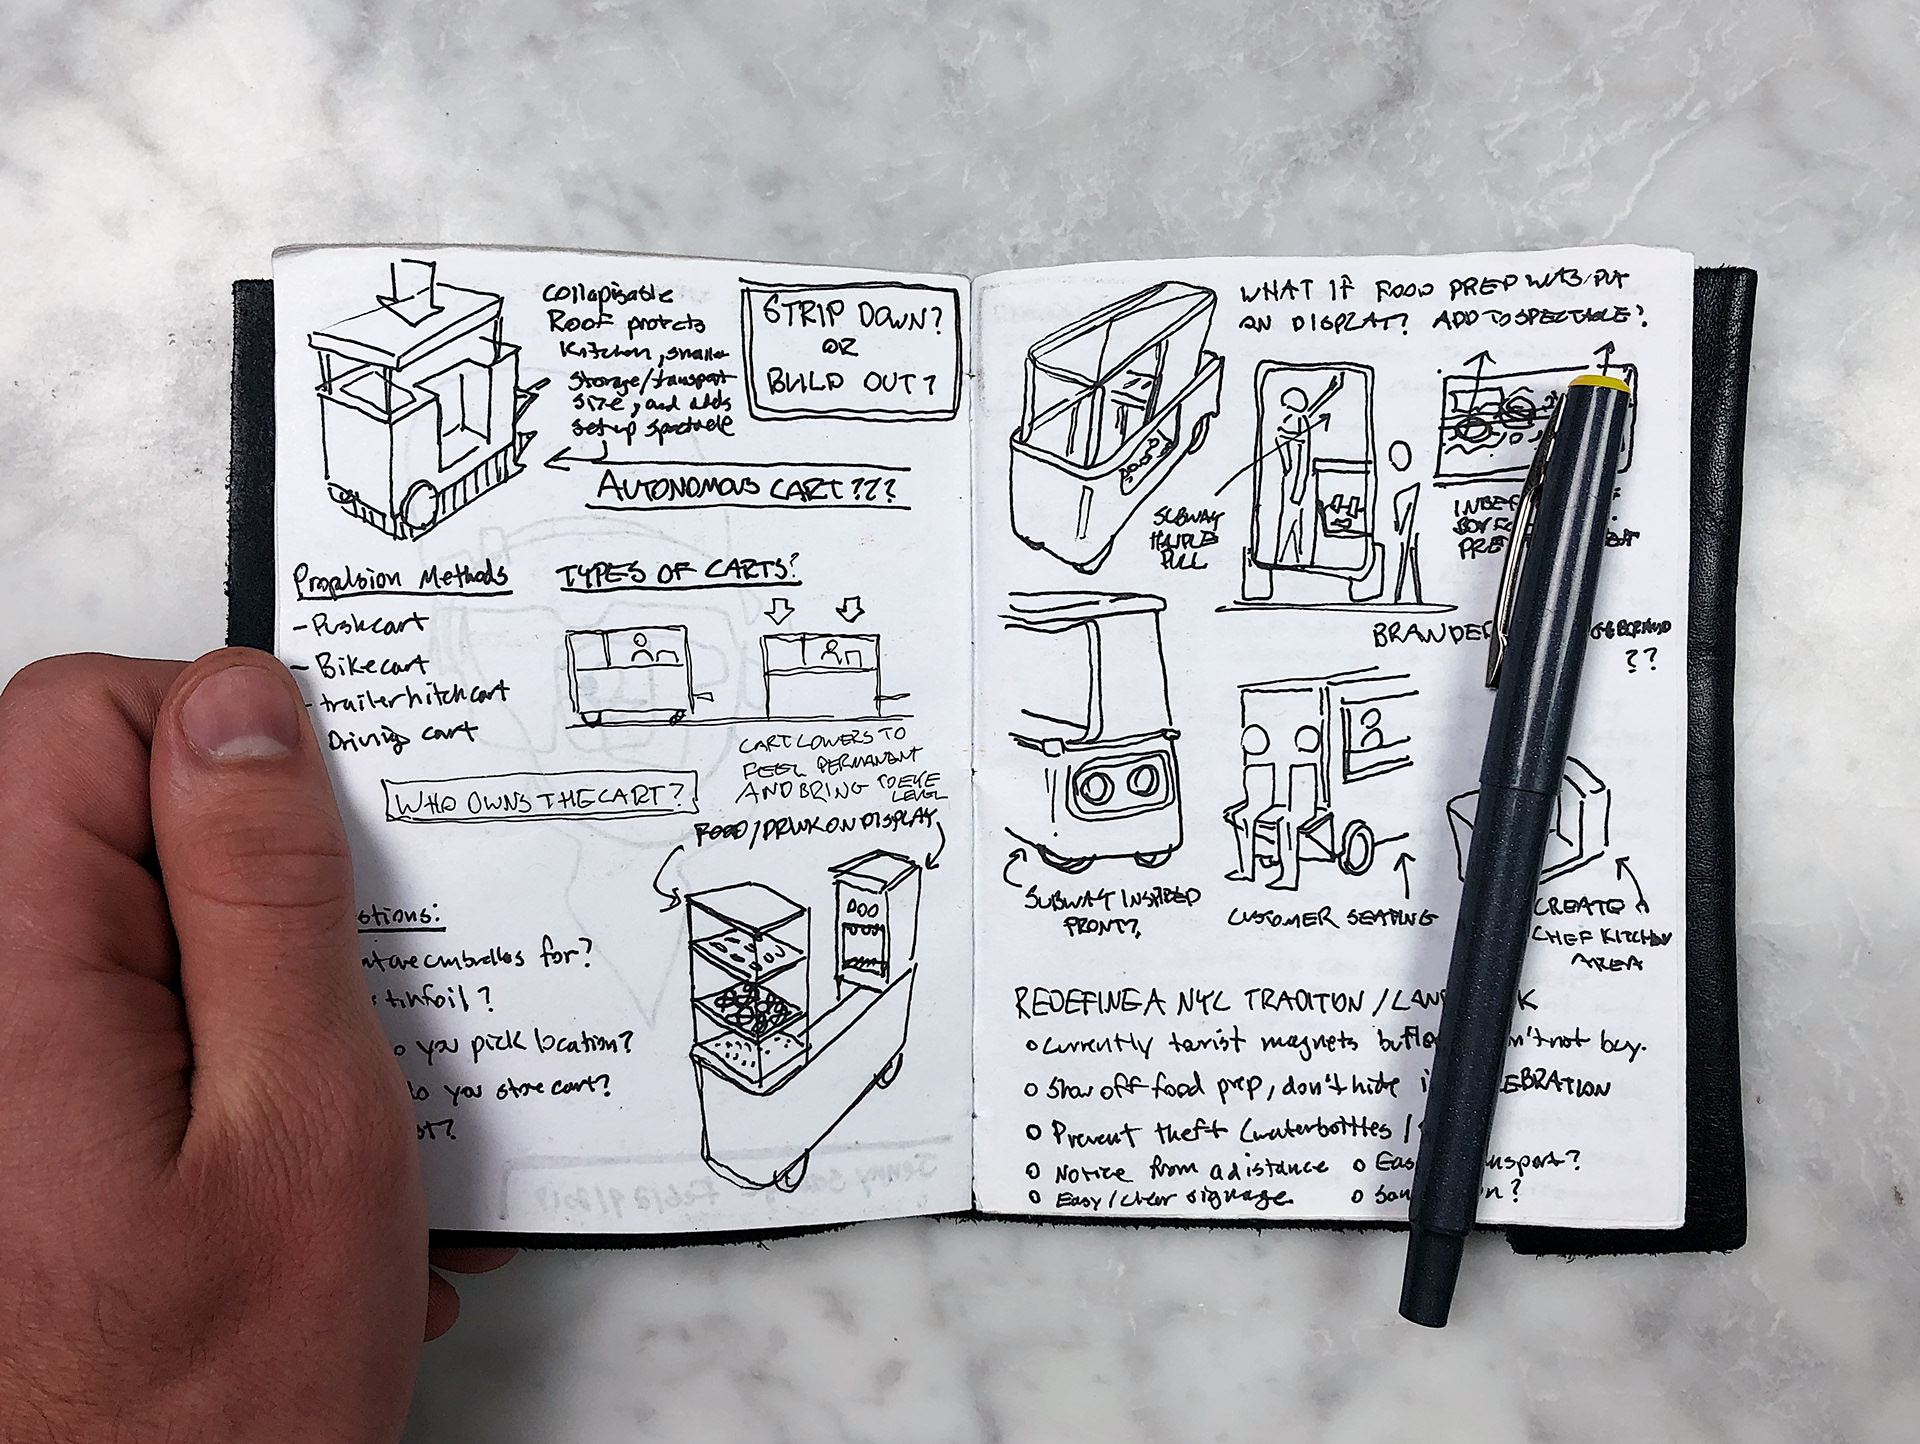 Collapisable
Roof protects
Kitchen, smaller
storage/transport
size, and adds
setup spectacle
STRIP DOWN?
OR
BUILD OUT?
AUTONOMOUS CART???
Propulsion Methods
- Pushcart
- Bikecart
- trailerhitchcart
Driving cart
TYPES OF CARTS?
CART LOWERS TO
FEEL PERMANENT
AND BRING TO EYE
LEVEL
WHO OWNS THE CART?
FOOD/DRINK ON DISPLAY
stions:
umbrellas for?
tinfoil?
o you pick location?
do you store cart?
st?
WHAT IF FOOD PREP WAS PUT
ON DISPLAY? ADD TO SPECTACLE?
SUBWAY
HANDLE
PULL
BRANDED
??
SUBWAY INSPIRED
FRONT?
CUSTOMER SEATING
CREATE A
CHEF KITCHEN
AREA
REDEFINE A NYC TRADITION / LAN K
o Currently tourist magnets but n't not buy.
o Show off food prep, don't hide i EBRATION
o Prevent theft (waterbottles /
o Notice from a distance o Eas nsport?
o Easy/clear signage o n?